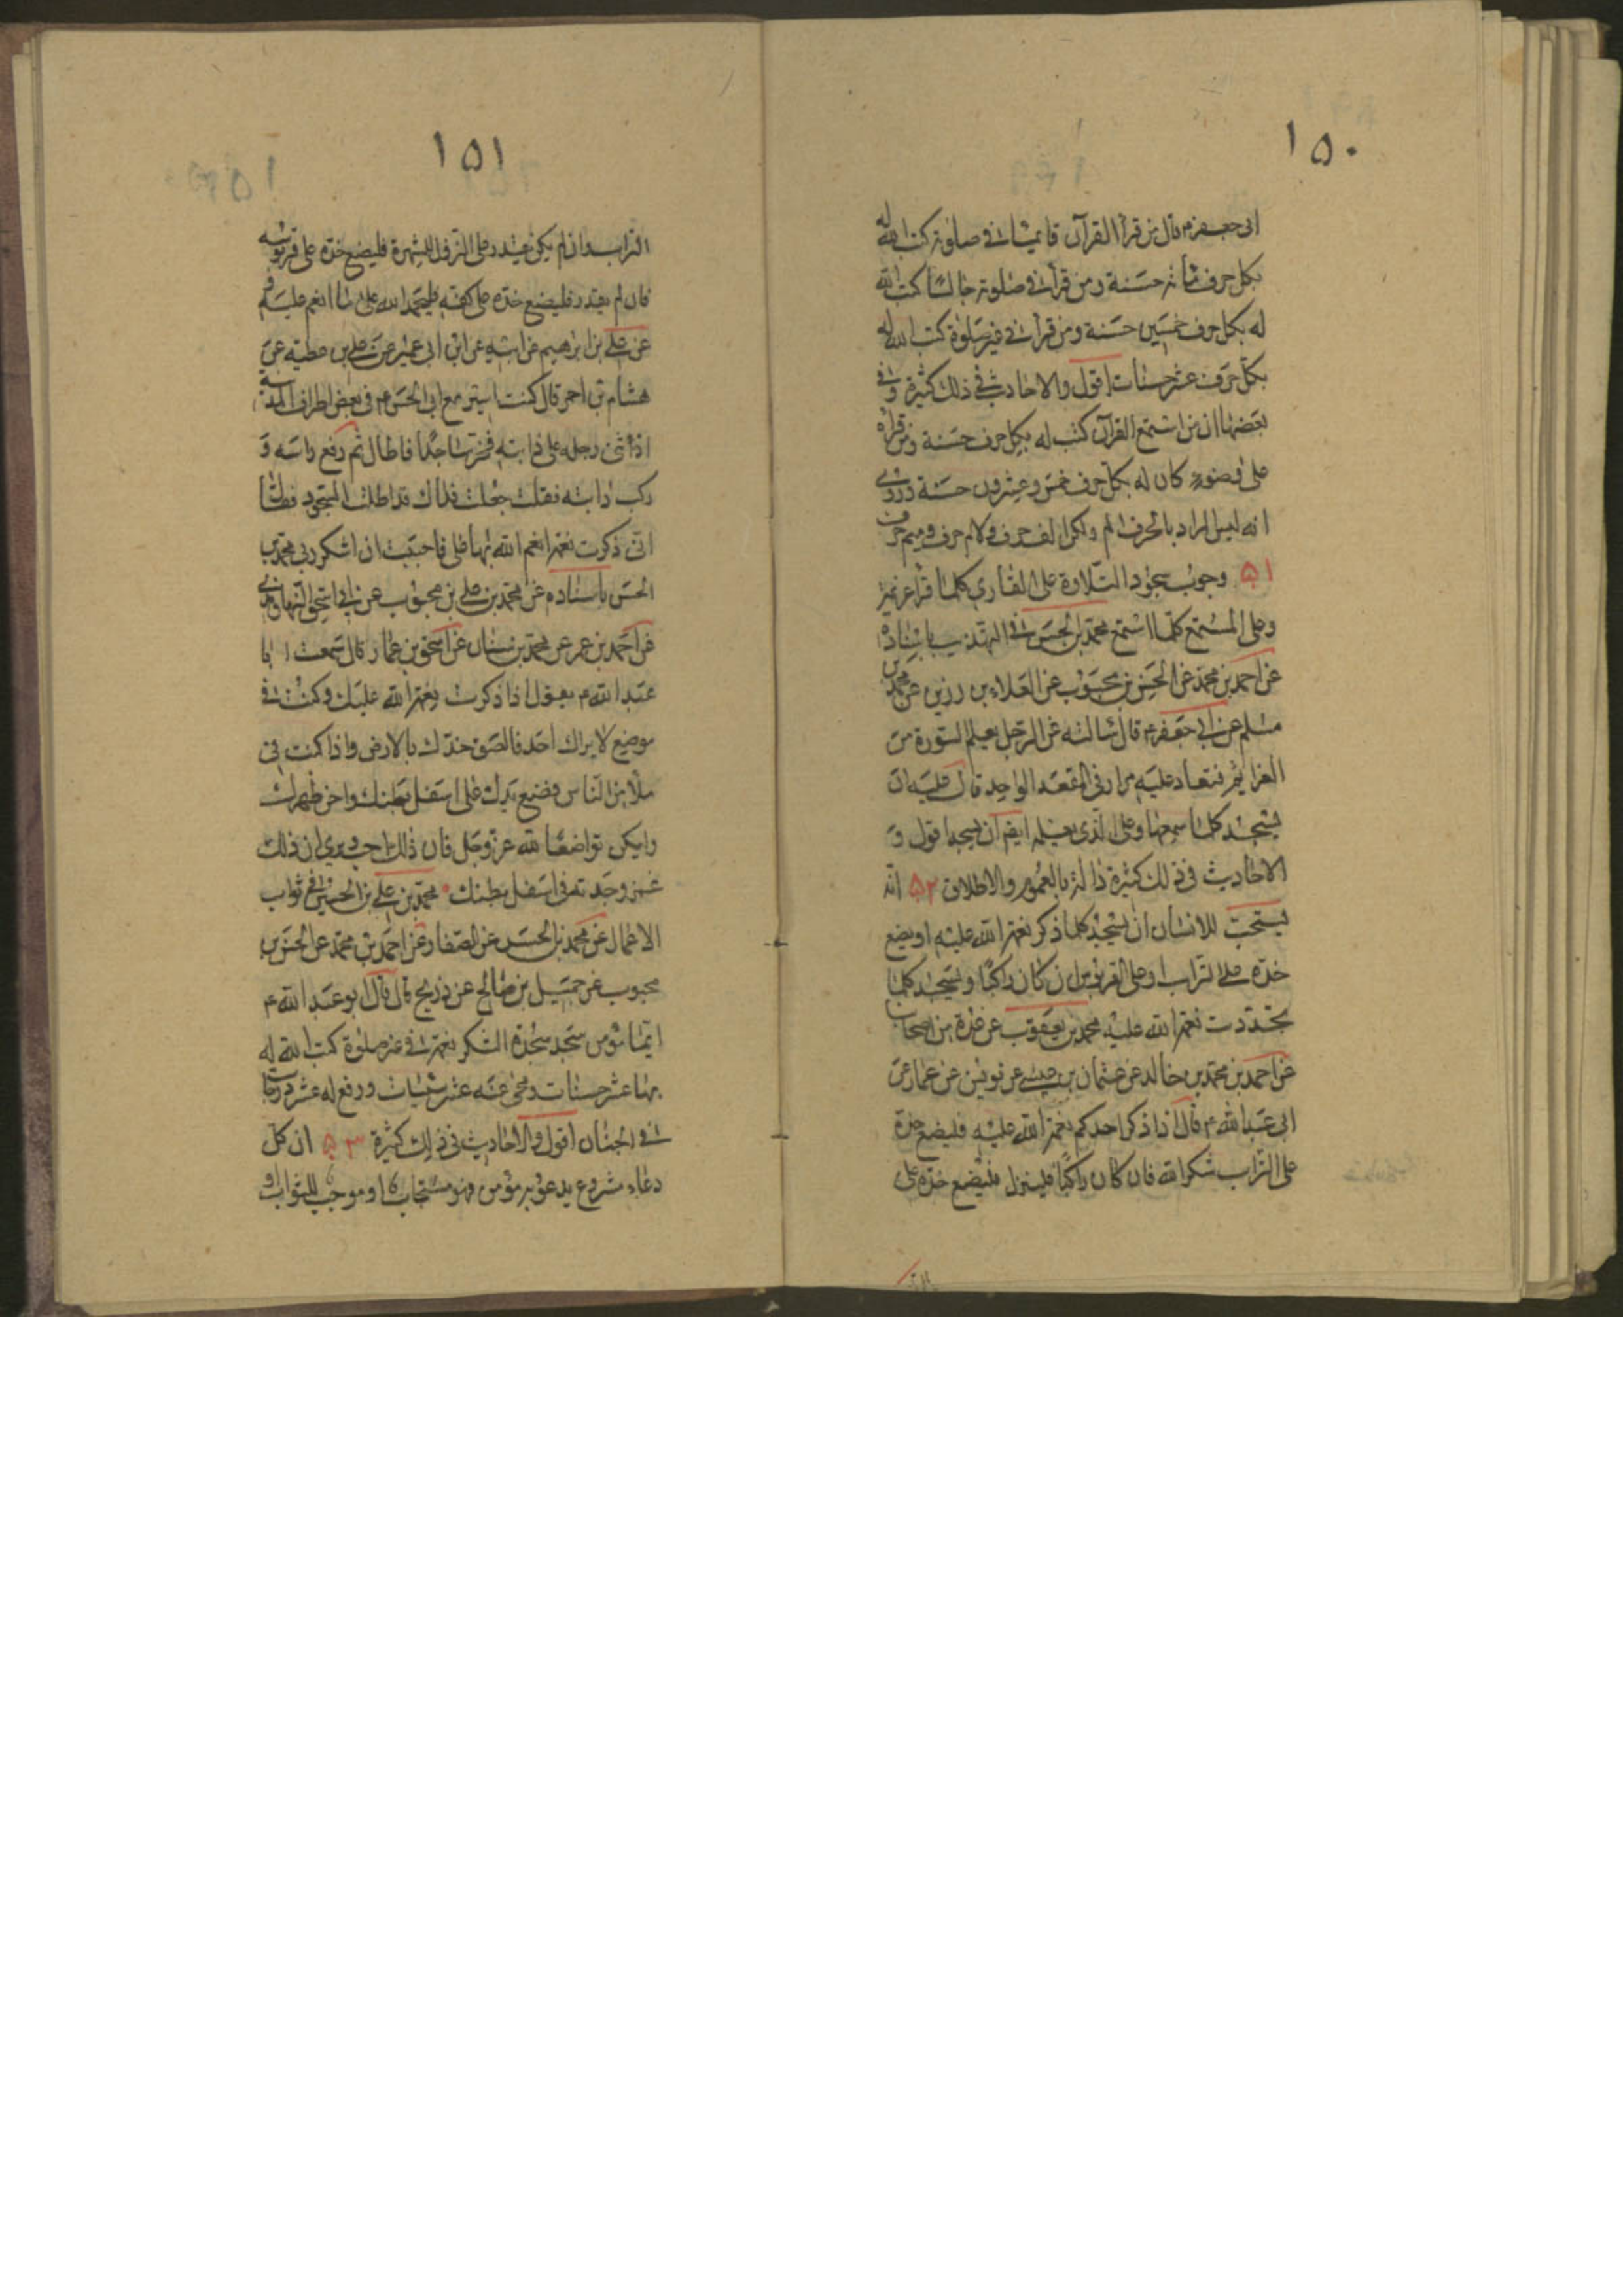 ١٥٠
ابى جعفر ع قال من قرأ القرآن قائما فى صلوته كتب الله له
بكل حرف مائة حسنة ومن قرأ فى صلوته جالسا كتب الله
له بكل حرف خمسين حسنة ومن قرأ فى غير صلوة كتب الله له
بكل حرف عشر حسنات اقول والاحاديث فى ذلك كثيرة وفى
بعضها ان من استمع القرآن كتب له بكل حرف حسنة ومن قرأه
على وضوء كان له بكل حرف خمس وعشرون حسنة وروى
انه ليس المراد بالحرف الم ولكن الف حرف ولام حرف وميم حرف
٥١ وجوب سجود التلاوة على القارى كلما قرأ عزيمة
وعلى المستمع كلما استمع محمد بن الحسن فى التهذيب باسناده
عن احمد بن محمد عن الحسن بن محبوب عن العلاء بن رزين عن محمد بن
مسلم عن ابى جعفر ع قال سالته عن الرجل يعلم السورة من
العزائم فتعاد عليه مرارا فى المقعد الواحد قال عليه ان
يسجد كلما سمعها وعلى الذى يعلمه ايضا ان يسجد اقول و
الاحاديث فى ذلك كثيرة دالة بالعموم والاطلاق ٥٢ انه
يستحب للانسان ان يسجد كلما ذكر نعمة الله عليه او يضع
خده على التراب او على القربوس ان كان راكبا ويسجد كلما
تجددت نعمة الله عليه محمد بن يعقوب عن عدة من اصحابنا
عن احمد بن محمد بن خالد عن عثمان بن عيسى عن يونس عن عمار عن
ابى عبد الله ع قال اذا ذكر احدكم نعمة الله عليه فليضع خده
على التراب شكرا لله فان كان راكبا فلينزل فليضع خده على
١٥١
التراب وان لم يكن يقدر على النزول للشهرة فليضع خده على قربوسه
فان لم يقدر فليضع خده على كفه وليحمد الله على ما انعم عليه و
عن على بن ابرهيم عن ابيه عن ابن ابى عمير عن على بن عطية عن
هشام بن احمر قال كنت اسير مع ابى الحسن ع فى بعض اطراف المدينة
اذ ثنى رجله على دابته فخر ساجدا فاطال ثم رفع راسه و
ركب دابته فقلت جعلت فداك قد اطلت السجود فقال
اننى ذكرت نعمة انعم الله بها على فاحببت ان اشكر ربى محمد بن
الحسن باسناده عن محمد بن على بن محبوب عن ابى اسحق النهاوندى
عن احمد بن عمر عن محمد بن سنان عن اسحق بن عمار قال سمعت ابا
عبد الله ع يقول اذا ذكرت نعمة الله عليك وكنت فى
موضع لا يراك احد فالصق خدك بالارض واذا كنت فى
ملأ من الناس فضع يدك على اسفل بطنك واحن ظهرك
وليكن تواضعا لله عز وجل فان ذلك احب ويرى ان ذلك
غمز وجدته فى اسفل بطنك محمد بن على بن الحسين فى ثواب
الاعمال عن محمد بن الحسن عن الصفار عن احمد بن محمد عن الحسن بن
محبوب عن جميل بن صالح عن ذريح قال قال ابو عبد الله ع
ايما مؤمن سجد سجدة الشكر نعمة فى غير صلوة كتب الله له
بها عشر حسنات ومحى عنه عشر سيئات ورفع له عشر درجات
فى الجنان اقول والاحاديث فى ذلك كثيرة ٥٣ ان كل
دعاء مشروع يدعو به مؤمن فهو مستجاب او موجب للثواب و